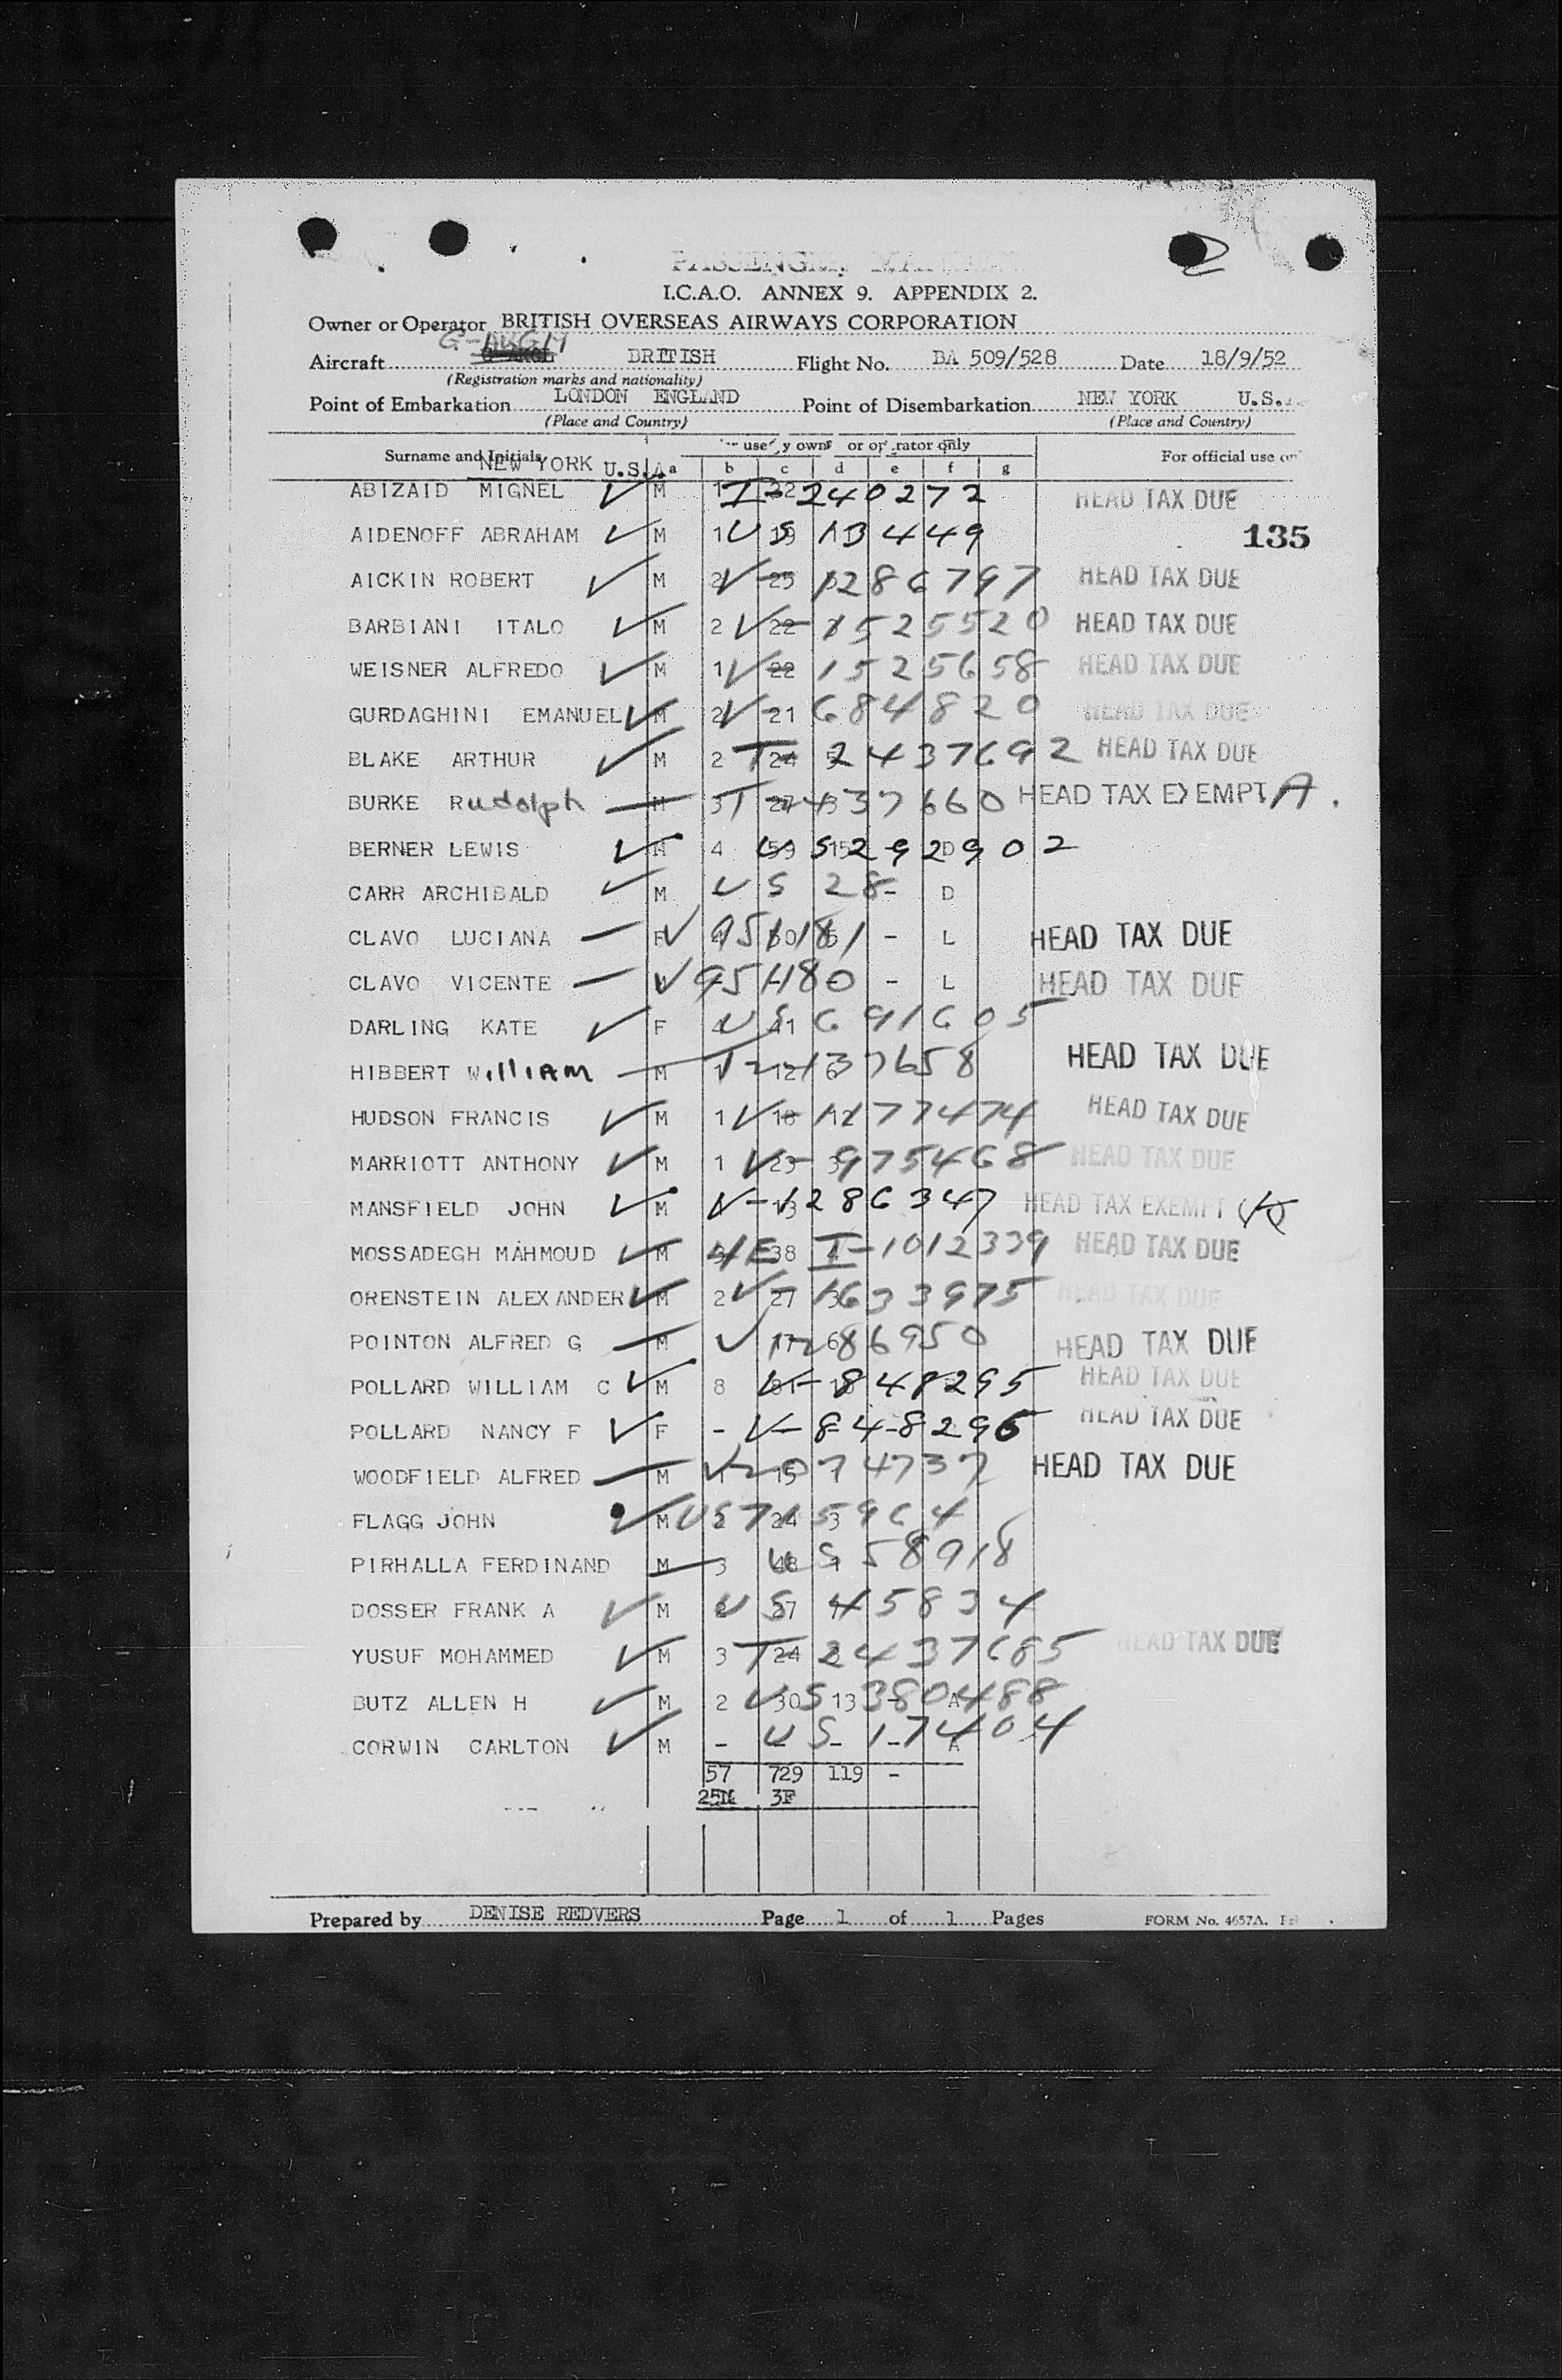 PASSENGER MANIFEST
I.C.A.O. ANNEX 9. APPENDIX 2.
Owner or Operator BRITISH OVERSEAS AIRWAYS CORPORATION
Aircraft BRITISH Flight No. BA 509/528 Date 18/9/52
(Registration marks and nationality)
Point of Embarkation LONDON ENGLAND Point of Disembarkation NEW YORK U.S.
(Place and Country) (Place and Country)
Surname and Initials use by owner or operator only For official use
NEW YORK U.S.A. a b c d e f g
ABIZAID MIGNEL M 1 I-240272 HEAD TAX DUE
AIDENOFF ABRAHAM M 1 US 13449 135
AICKIN ROBERT M 2 V-1286797 HEAD TAX DUE
BARBIANI ITALO M 2 V-1525520 HEAD TAX DUE
WEISNER ALFREDO M 1 V-1525658 HEAD TAX DUE
GURDAGHINI EMANUEL M 2 V-21 684820 HEAD TAX DUE
BLAKE ARTHUR M 2 T-2437692 HEAD TAX DUE
BURKE Rudolph M 3 T-2437660 HEAD TAX EXEMPT A.
BERNER LEWIS M 4 US 292902 D
CARR ARCHIBALD M US 28 - D
CLAVO LUCIANA F V 951181 - L HEAD TAX DUE
CLAVO VICENTE V 951180 - L HEAD TAX DUE
DARLING KATE F US 691605
HIBBERT William M HEAD TAX DUE
HUDSON FRANCIS M 1 V-1177474 HEAD TAX DUE
MARRIOTT ANTHONY M 1 V-975468 HEAD TAX DUE
MANSFIELD JOHN M V-1286347 HEAD TAX EXEMPT
MOSSADEGH MAHMOUD M 38 I-1012339 HEAD TAX DUE
ORENSTEIN ALEXANDER M 2 V-27 1633975 HEAD TAX DUE
POINTON ALFRED G M V 1286950 HEAD TAX DUE
POLLARD WILLIAM C M 8 V-848295 HEAD TAX DUE
POLLARD NANCY F F - V-848296 HEAD TAX DUE
WOODFIELD ALFRED M HEAD TAX DUE
FLAGG JOHN M US 715964
PIRHALLA FERDINAND M 3 US 58918
DOSSER FRANK A M US 45834
YUSUF MOHAMMED M 3 T-24 2437685 HEAD TAX DUE
BUTZ ALLEN H M 2 US 30 13 380488 A
CORWIN CARLTON M - US 17404 A
57 729 119 -
25M 3F
Prepared by DENISE REDVERS Page 1 of 1 Pages FORM No. 4657A.